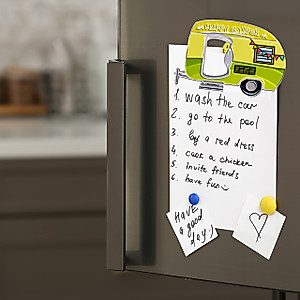 1. wash the car
2. go to the pool
3. buy a red dress
4. cook a chicken
5. invite friends
6. have fun :)
HAVE
a good
day! :)